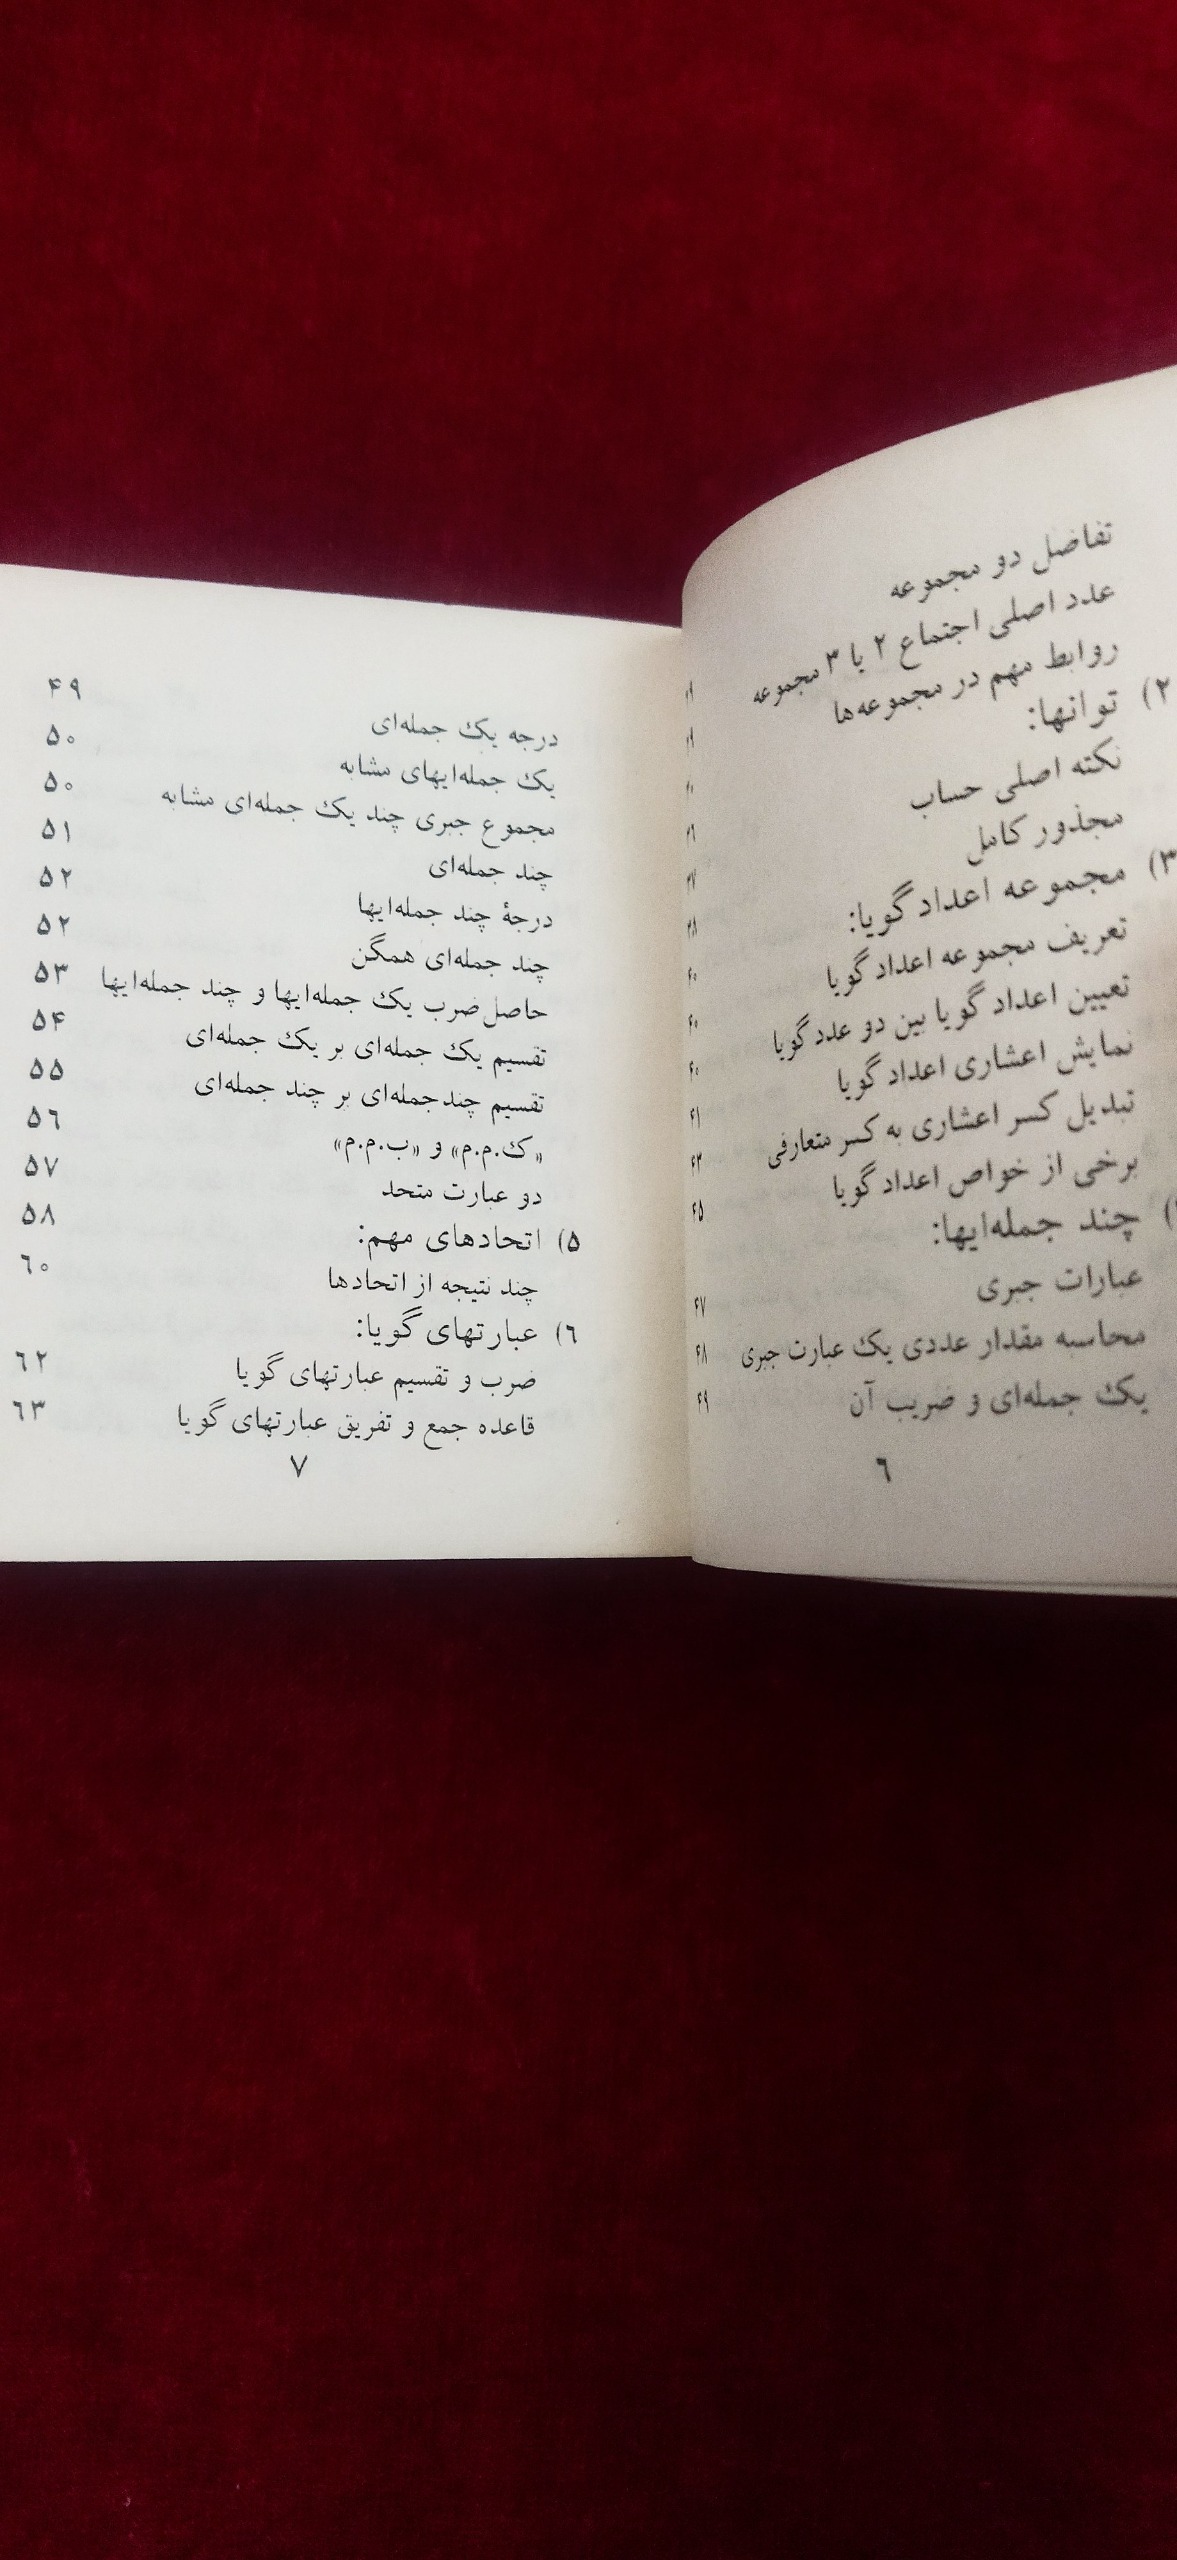 تفاضل دو مجموعه
عدد اصلی اجتماع ۲ یا ۳ مجموعه
روابط مهم در مجموعه‌ها
۲) توانها:
نکته اصلی حساب
مجذور کامل
۳) مجموعه اعداد گویا:
تعریف مجموعه اعداد گویا
تعیین اعداد گویا بین دو عدد گویا
نمایش اعشاری اعداد گویا
تبدیل کسر اعشاری به کسر متعارفی
برخی از خواص اعداد گویا
چند جمله‌ایها:
عبارات جبری ۴۷
محاسبه مقدار عددی یک عبارت جبری ۴۸
یک جمله‌ای و ضریب آن ۴۹
٦
درجه یک جمله‌ای ۴۹
یک جمله‌ایهای مشابه ۵۰
مجموع جبری چند یک جمله‌ای مشابه ۵۰
چند جمله‌ای ۵۱
درجهٔ چند جمله‌ایها ۵۲
چند جمله‌ای همگن ۵۲
حاصل‌ضرب یک جمله‌ایها و چند جمله‌ایها ۵۳
تقسیم یک جمله‌ای بر یک جمله‌ای ۵۴
تقسیم چندجمله‌ای بر چند جمله‌ای ۵۵
«ک.م.م» و «ب.م.م» ۵٦
دو عبارت متحد ۵۷
۵) اتحادهای مهم: ۵۸
چند نتیجه از اتحادها ٦۰
٦) عبارتهای گویا:
ضرب و تقسیم عبارتهای گویا ٦۲
قاعده جمع و تفریق عبارتهای گویا ٦۳
۷